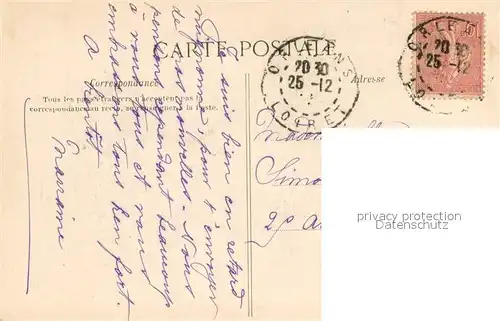 CARTE POSTALE
Correspondance
Adresse
Tous les pays étrangers n'acceptent pas la
correspondance au recto, se renseigner à la Poste.
ORLEANS
20 30
25-12
LOIRET
ORLE
20 30
25-12
10
Je suis bien en retard
ma mignonne, pour t'envoyer
de nouvelles. Nous
pensons cependant beaucoup
à vous tous et vous
embrassons tous bien fort.
A bientôt
Marraine
Simo
2 
privacy protection
Datenschutz